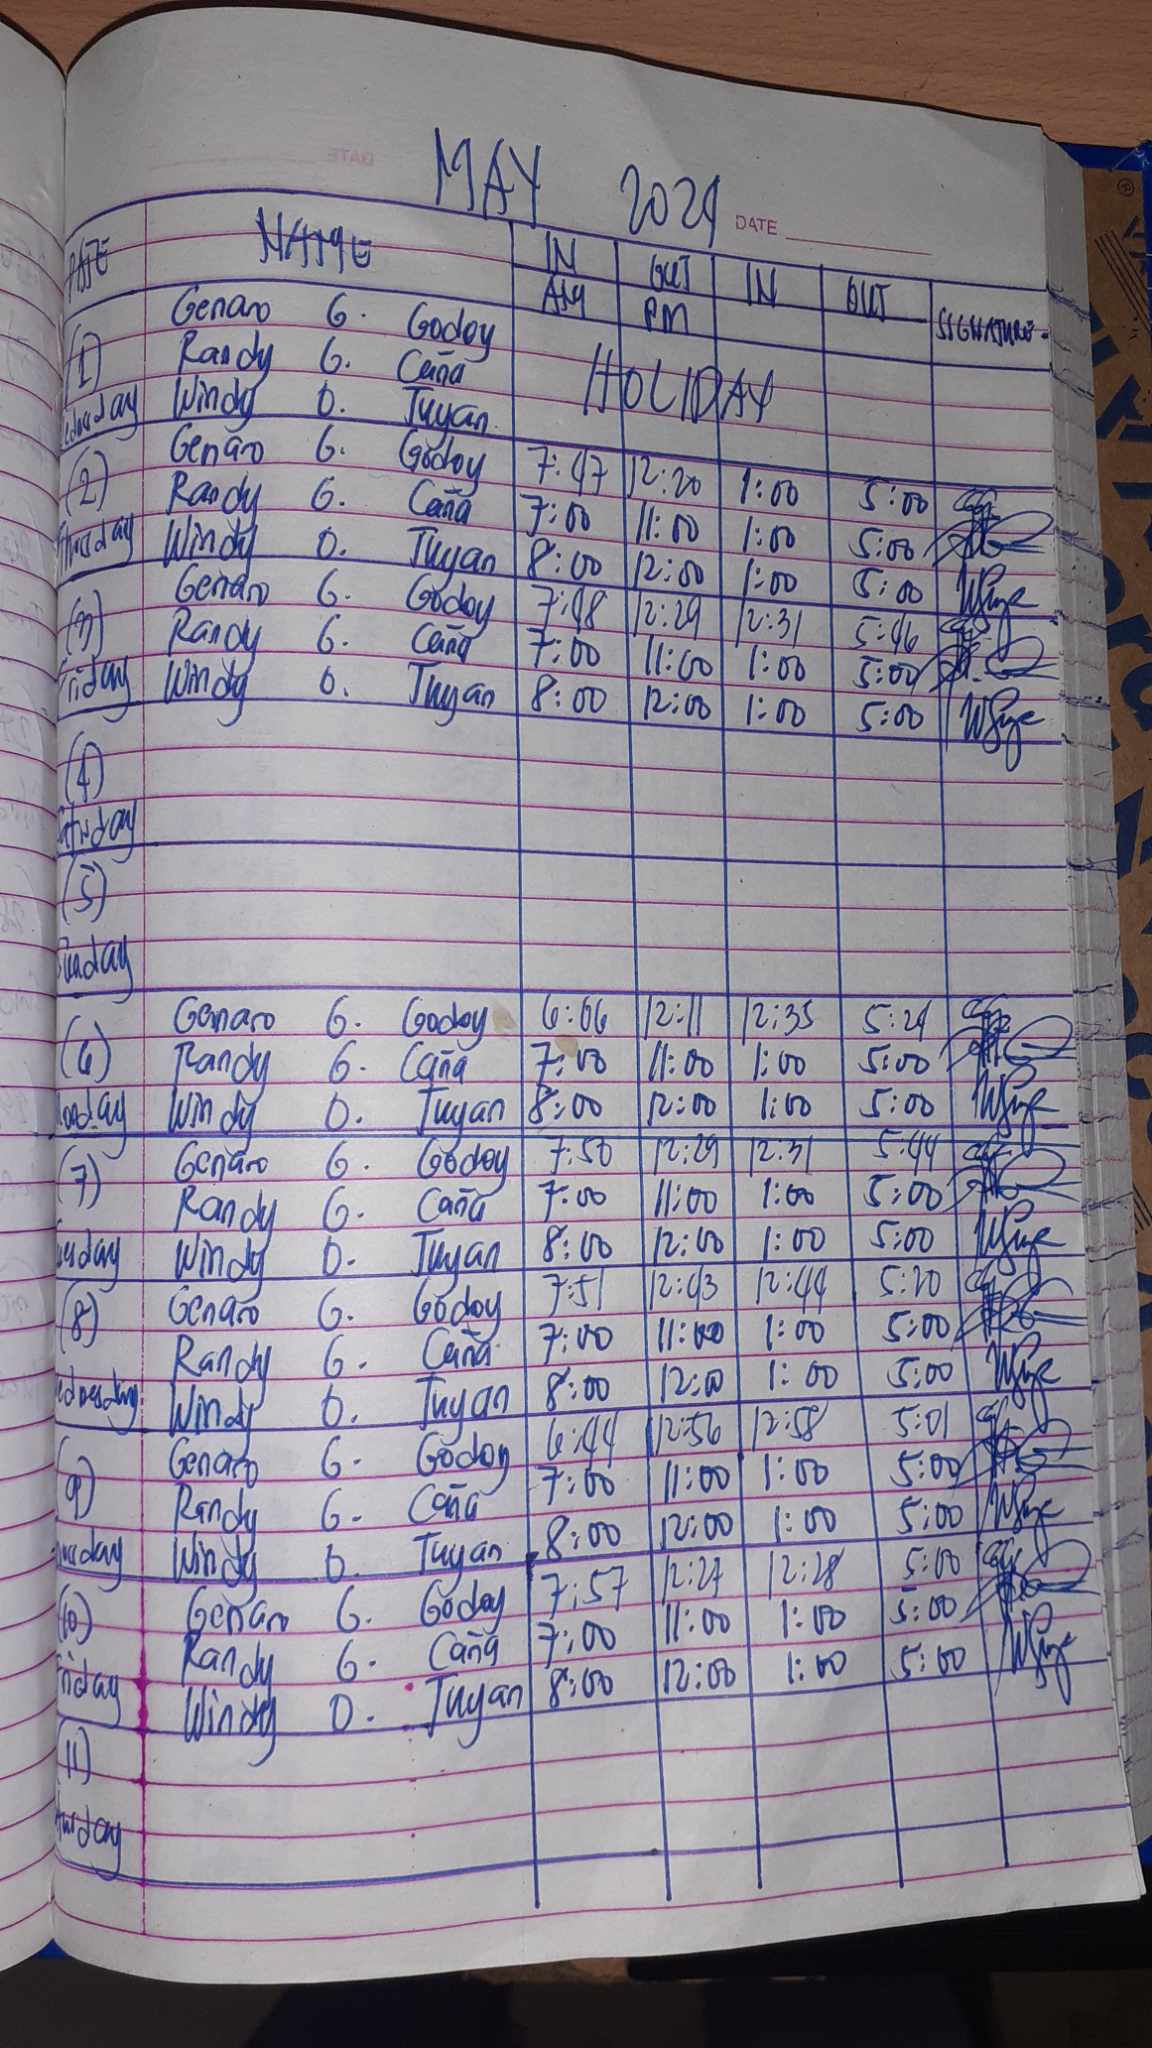 MAY 2024 DATE
DATE NAME IN OUT IN OUT SIGNATURE
AM PM
(1) Genaro G. Godoy
Randy G. Caña HOLIDAY
Windy O. Tuyan
(2) Genaro G. Godoy 7:47 12:20 1:00 5:00
Randy G. Caña 7:00 11:00 1:00 5:00
Thursday Windy O. Tuyan 8:00 12:00 1:00 5:00
(3) Genaro G. Godoy 7:48 12:29 12:31 5:46
Randy G. Caña 7:00 11:00 1:00 5:00
Friday Windy O. Tuyan 8:00 12:00 1:00 5:00
(4)
(5)
Sunday
(6) Genaro G. Godoy 6:06 12:11 12:35 5:24
Randy G. Caña 7:00 11:00 1:00 5:00
Windy O. Tuyan 8:00 12:00 1:00 5:00
(7) Genaro G. Godoy 7:50 12:29 12:31 5:44
Randy G. Caña 7:00 11:00 1:00 5:00
Windy O. Tuyan 8:00 12:00 1:00 5:00
(8) Genaro G. Godoy 7:51 12:43 12:44 5:20
Randy G. Caña 7:00 11:00 1:00 5:00
Windy O. Tuyan 8:00 12:00 1:00 5:00
(9) Genaro G. Godoy 6:44 12:56 12:58 5:01
Randy G. Caña 7:00 11:00 1:00 5:00
Windy O. Tuyan 8:00 12:00 1:00 5:00
(10) Genaro G. Godoy 7:57 12:27 12:28 5:00
Randy G. Caña 7:00 11:00 1:00 5:00
Friday Windy O. Tuyan 8:00 12:00 1:00 5:00
(11)